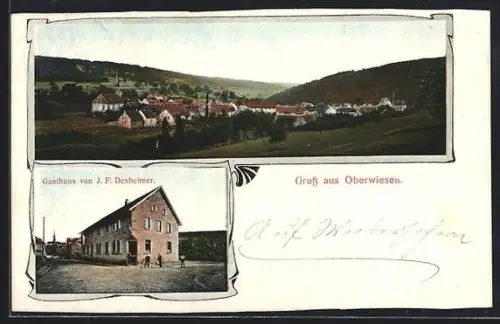 Gasthaus von J. F. Dexheimer.
Gruß aus Oberwiesen.
Auf Wiedersehen